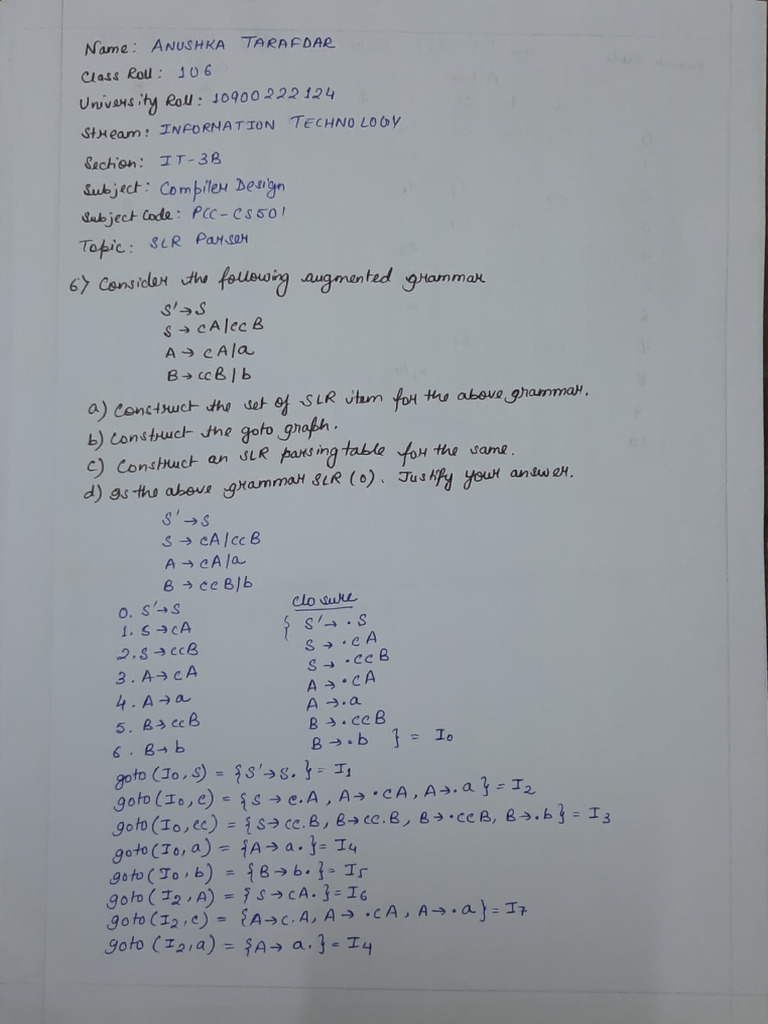 Name: ANUSHKA TARAFDAR
Class Roll: 106
University Roll: 10900222124
Stream: INFORMATION TECHNOLOGY
Section: IT-3B
Subject: Compiler Design
Subject Code: PCC-CS501
Topic: SLR Parser
6) Consider the following augmented grammar
S' → S
S → cA/ccB
A → cA/a
B → ccB/b
a) Construct the set of SLR item for the above grammar.
b) Construct the goto graph.
c) Construct an SLR parsing table for the same.
d) Is the above grammar SLR (0). Justify your answer.
S' → S
S → cA/ccB
A → cA/a
B → ccB/b
0. S' → S
1. S → cA
2. S → ccB
3. A → cA
4. A → a
5. B → ccB
6. B → b
closure
{ S' → .S
S → .cA
S → .ccB
A → .cA
A → .a
B → .ccB
B → .b } = I0
goto (I0, S) = {S' → S. } = I1
goto (I0, c) = {S → c.A, A → .cA, A → .a } = I2
goto (I0, cc) = {S → cc.B, B → cc.B, B → .ccB, B → .b} = I3
goto (I0, a) = {A → a. } = I4
goto (I0, b) = {B → b. } = I5
goto (I2, A) = {S → cA. } = I6
goto (I2, c) = {A → c.A, A → .cA, A → .a} = I7
goto (I2, a) = {A → a. } = I4